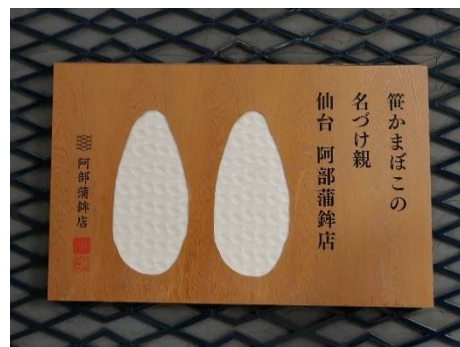 笹かまぼこの
名づけ親
仙台 阿部蒲鉾店
阿部蒲鉾店